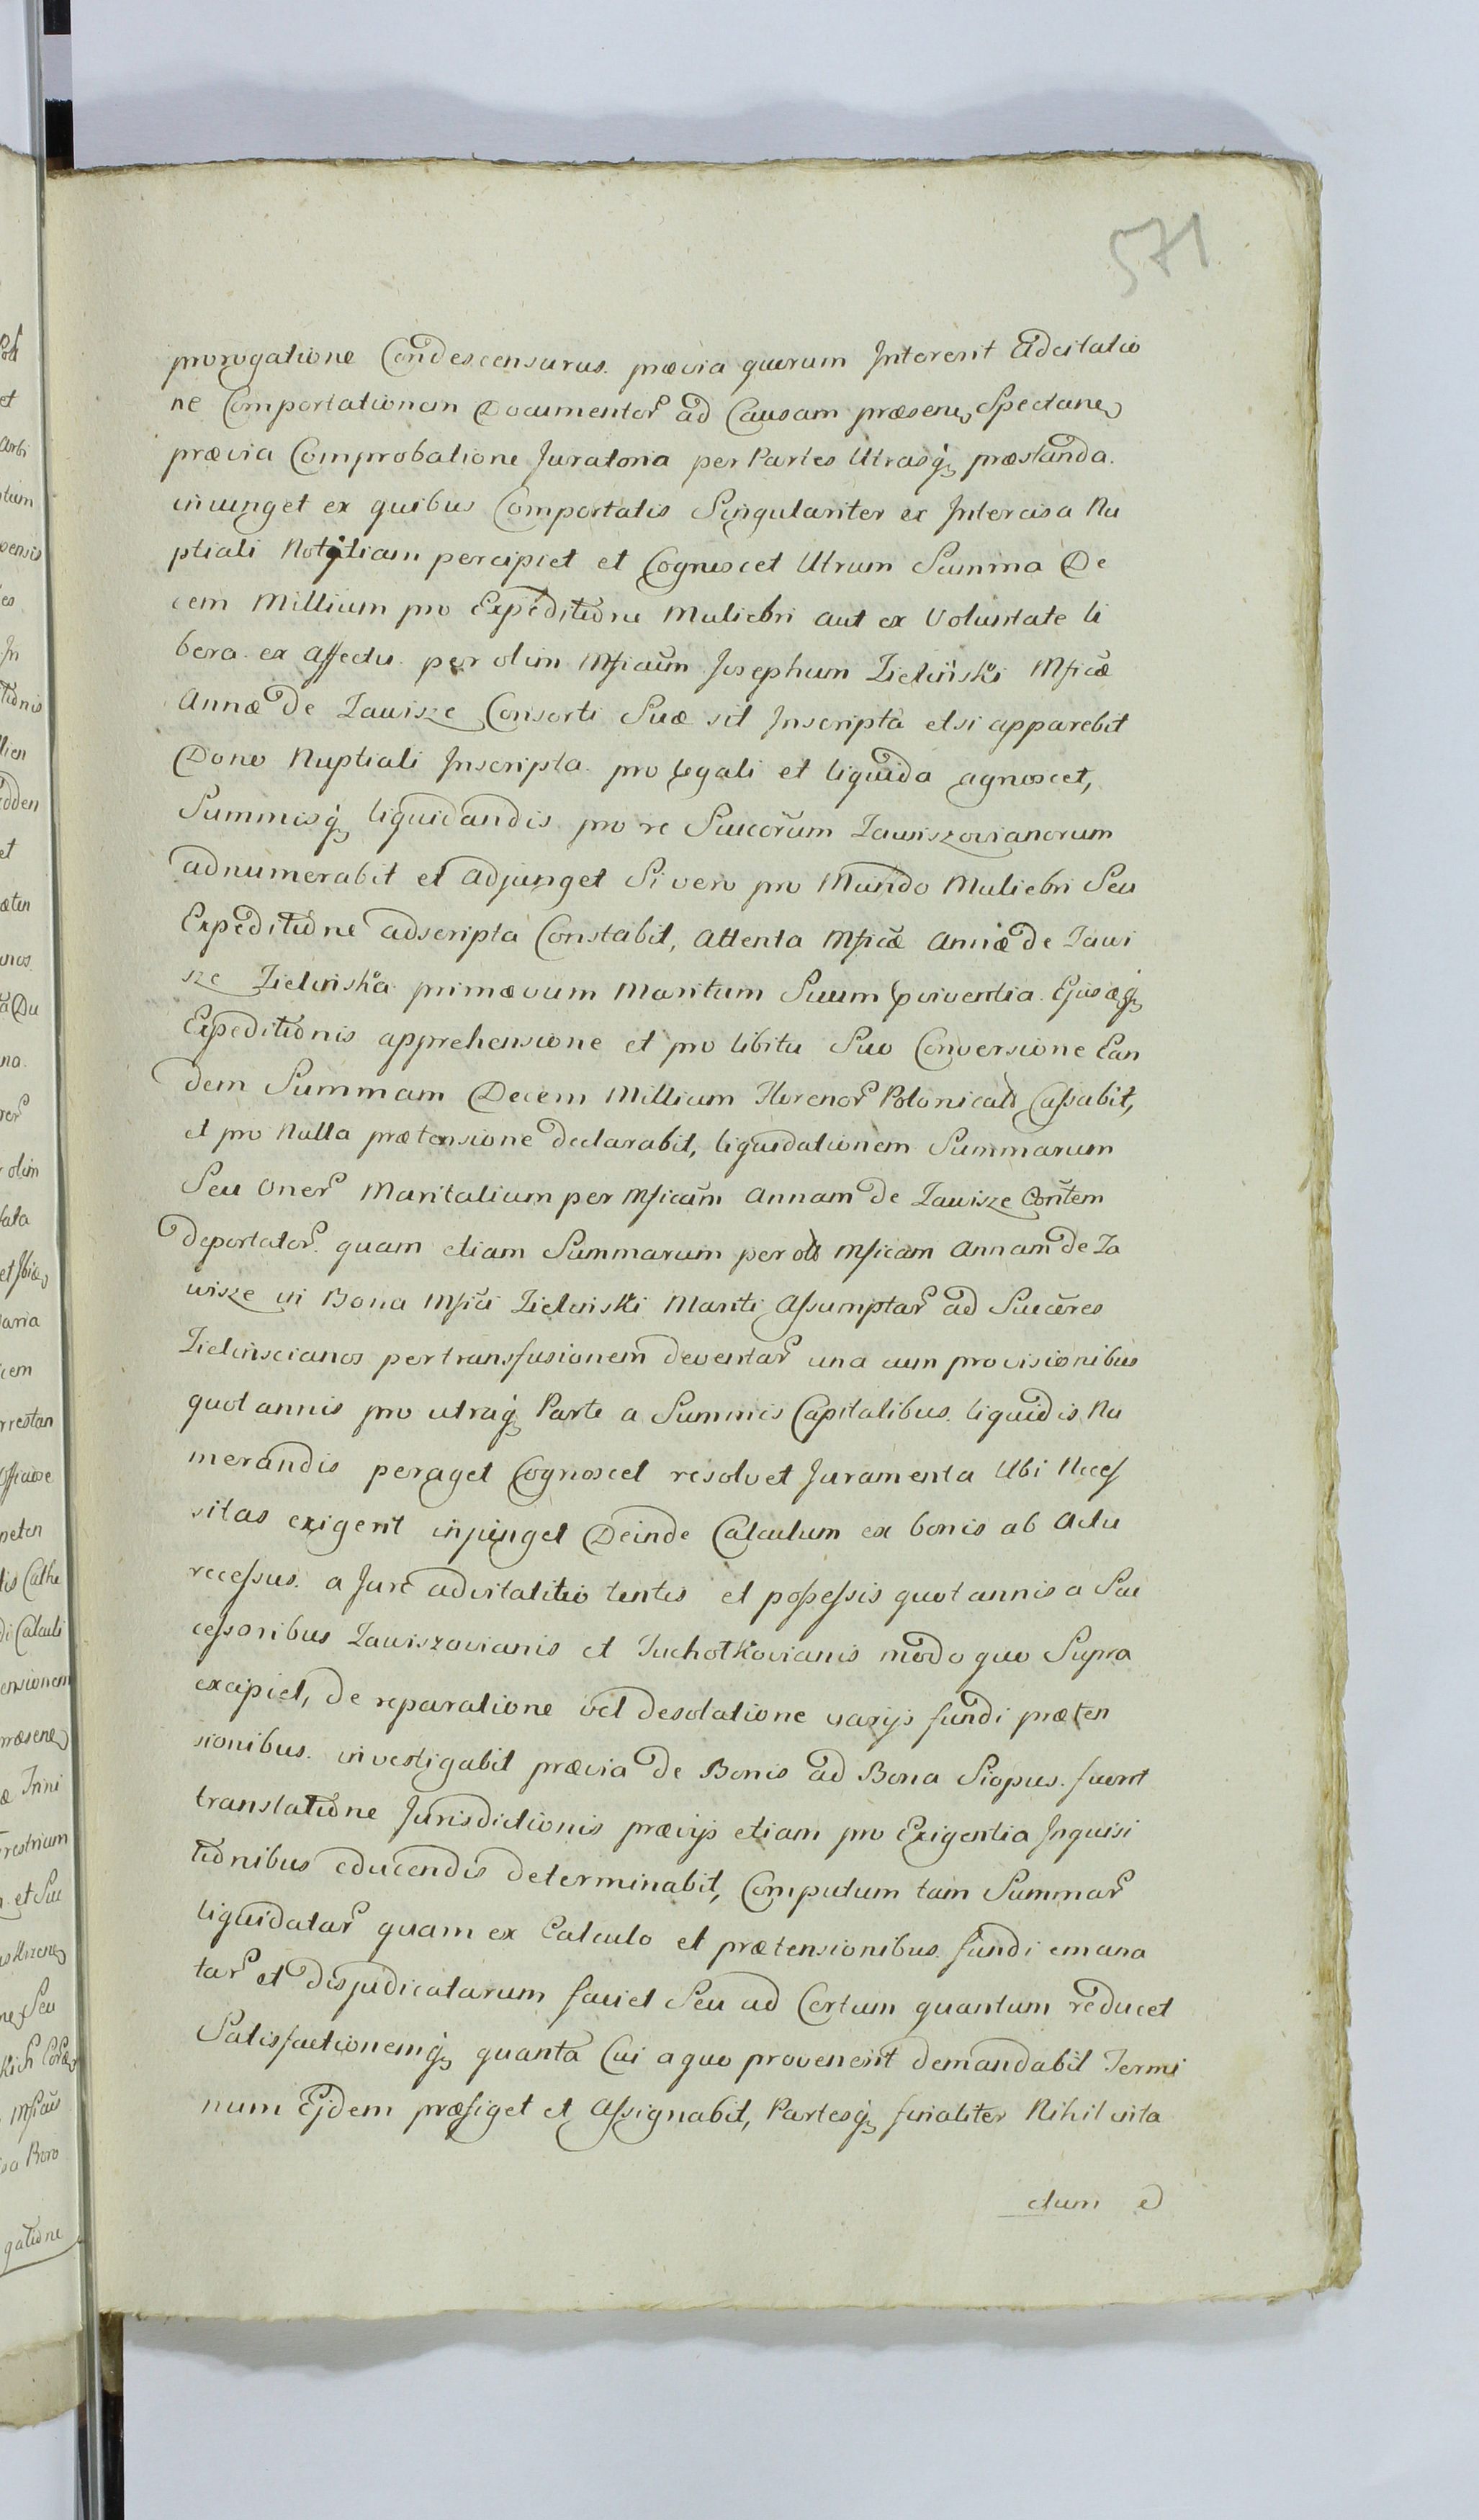 571
prorogatione Condescensurus. prævia quorum Intererit Adcitatio
ne Comportationem Documentor̃ ad Causam præsenẽ Spectanẽ
prævia Comprobatione Juratoria per Partes Utrasq̃ præstanda.
iniunget ex quibus Comportatis Singulariter ex Intercisa Nu
ptiali Notitiam percipiet et Cognoscet Utrum Summa De
cem Millium pro Expeditione Muliebri aut ex Voluntate li
bera. ex affectu. per olim Mficum̃ Josephum Zieliński Mficæ̃
Annæ de Zawisze Consorti Suæ sit Inscripta etsi apparebit
Dono Nuptiali Inscripta. pro legali et liquida agnoscet,
Summisq̃ liquidandis pro re Succor̃um Zawiszovianorum
adnumerabit et adjunget Si vero pro Mundo Muliebri Seu
Expeditione adscripta Constabit, attenta Mficæ̃ Annæ de Zawi
sze Zielińska primævum Maritum Suum Ejusæq̃
Expeditionis apprehensione et pro libitu Suo Conversione Ean
dem Summam Decem Millium Florenor̃ Polonical̃ Cassabit,
et pro Nulla prætensione declarabit, liquidationem Summarum
Seu Oner̃ Maritalium per Mficam̃ Annam de Zawisze Con̄tem
deportator̃. quam etiam Summarum per Mficam Annam de Za
wisze in Bona Mfici Zieliński Mariti Assumptar̃ ad Succeres̃
Zielinscianos per transfusionem deventar̃ una cum provisionibus
quot annis pro utraq̃ Parte a Summis Capitalibus. liquidis Nu
merandis peraget Cognoscet resolvet Juramenta Ubi Neces
sitas exigerit injunget Deinde Calculum ex bonis ab Actu
recessus. a Jure advitalitio tentis et possessis quot annis a Suc
cessoribus Zawiszovianis et Suchotkovianis modo quo Supra
excipiet, de reparatione vel desolatione varijs fundi præten
sionibus. investigabit prævia de Bonis ad Bona Siopus. fuerit
translatione Jurisdictionis prævijs etiam pro Exigentia Inquisi
tionibus educendis determinabit, Computum tam Summar̃
liquidatar̃ quam ex Calculo et prætensionibus. fundi emana
tar̃ et disjudicatarum faciet Seu ad Certum quantum reducet
Satisfactionemq̃ quanta Cui a quo provenerit demandabit Termi
num Ejdem præfiget et Assignabit, Partesq̃ finaliter Nihil inta
ctum e